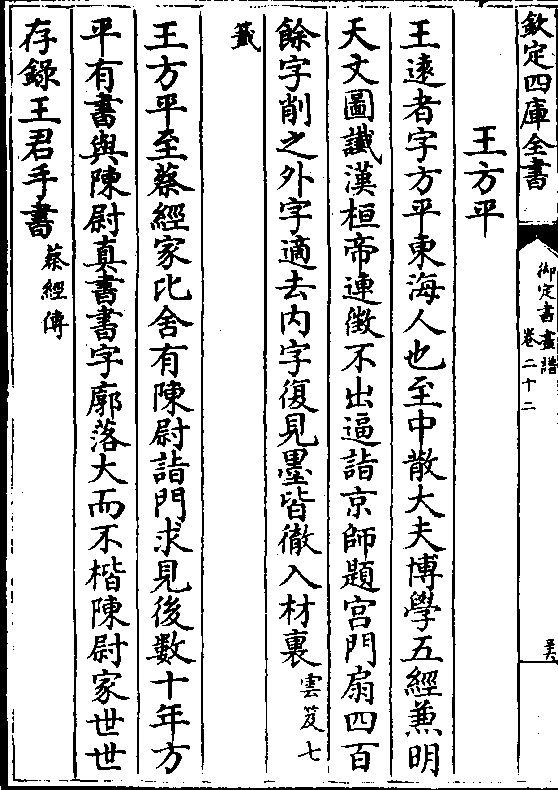 欽定四庫全書
御定書畫譜
卷二十二
王方平
王遠者字方平東海人也至中散大夫博學五經兼明
天文圖讖漢桓帝連徵不出逼詣京師題宮門扇四百
餘字削之外字適去内字復見墨皆徹入材裏雲笈七
籖
王方平至蔡經家比舍有陳尉詣門求見後數十年方
平有書與陳尉真書書字廓落大而不楷陳尉家世世
存錄王君手書蔡經傳